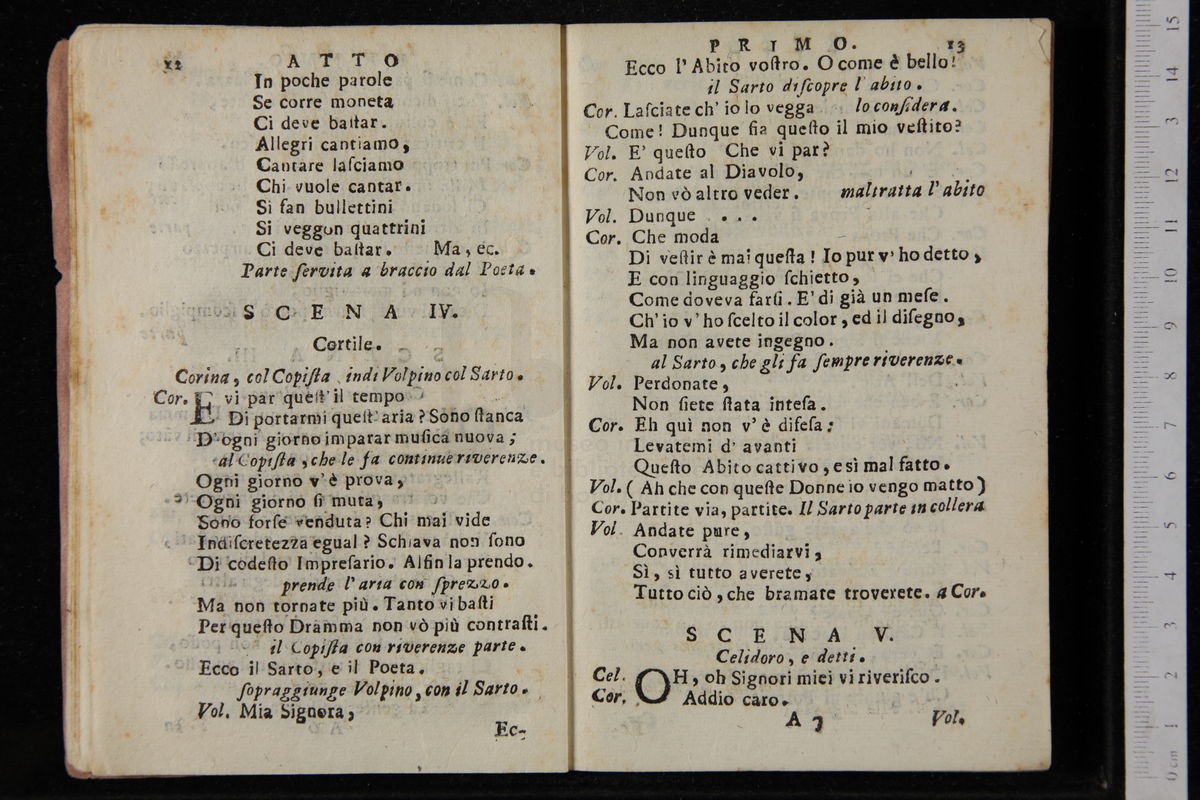 12 ATTO
In poche parole
Se corre moneta
Ci deve baſtar.
Allegri cantiamo,
Cantare laſciamo
Chi vuole cantar.
Si fan bullettini
Si veggon quattrini
Ci deve baſtar. Ma, ec.
Parte ſervita a braccio dal Poeta.
SCENA IV.
Cortile.
Corina, col Copiſta, indi Volpino col Sarto.
Cor. E vi par queſt' il tempo
Di portarmi queſt' aria? Sono ſtanca
D' ogni giorno imparar muſica nuova;
al Copiſta, che le fa continue riverenze.
Ogni giorno v' è prova,
Ogni giorno ſi muta,
Sono forſe venduta? Chi mai vide
Indiſcretezza egual? Schiava non ſono
Di codeſto Impreſario. Alfin la prendo.
prende l' aria con ſprezzo.
Ma non tornate più. Tanto vi baſti
Per queſto Dramma non vò più contraſti.
il Copiſta con riverenze parte.
Ecco il Sarto, e il Poeta.
ſopraggiunge Volpino, con il Sarto.
Vol. Mia Signora,
Ec-
PRIMO. 13
Ecco l' Abito voſtro. O come è bello!
il Sarto diſcopre l' abito.
Cor. Laſciate ch' io lo vegga lo conſidera.
Come! Dunque ſia queſto il mio veſtito?
Vol. E' queſto Che vi par?
Cor. Andate al Diavolo,
Non vò altro veder. maltratta l' abito
Vol. Dunque . . .
Cor. Che moda
Di veſtir è mai queſta! Io pur v' ho detto,
E con linguaggio ſchietto,
Come doveva farſi. E' di già un meſe.
Ch' io v' ho ſcelto il color, ed il diſegno,
Ma non avete ingegno.
al Sarto, che gli fa ſempre riverenze.
Vol. Perdonate,
Non ſiete ſtata inteſa.
Cor. Eh quì non v' è difeſa:
Levatemi d' avanti
Queſto Abito cattivo, e sì mal fatto.
Vol. ( Ah che con queſte Donne io vengo matto )
Cor. Partite via, partite. Il Sarto parte in collera
Vol. Andate pure,
Converrà rimediarvi,
Sì, sì tutto averete,
Tutto ciò, che bramate troverete. a Cor.
SCENA V.
Celidoro, e detti.
Cel. OH, oh Signori miei vi riveriſco.
Cor. Addio caro.
A 3 Vol.